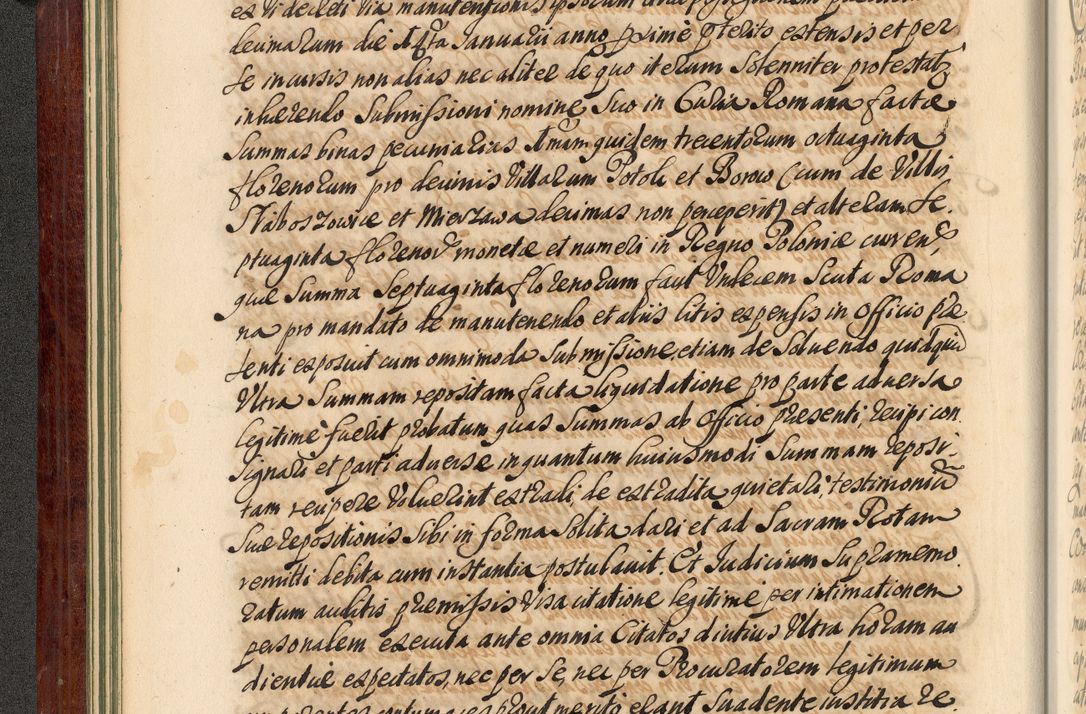 es vi decreti via manutentionis ipsorum circa possessionem
decimarum die 4ta Januarii anno proxime praeterito extensis et per
se incursis non alias nec aliter de quo iterum Solenniter protestat
inhaerendo Submissioni nomine Suo in Curia Romana factae
Summas binas pecuniarias Unam quidem trecentorum octuaginta
florenorum pro decimis Villarum Potok et Borow (cum de Villis
Slaboszowice et Mierzawa decimas non perceperit) et alteram Se
ptuaginta florenor monetae et numeri in Regno Poloniae curren
quae Summa Septuaginta florenorum facit Undecem Scuta Roma
na pro mandato de manutenendo et aliis litis expensis in officio prae
senti exposuit cum omnimoda Submissione, etiam de Solvendo quidquid
Ultra Summam repositam facta liquidatione pro parte adversa
legitime fuerit probatum quas Summas ab officio praesenti, recipi con
signari et parti adversae inquantum huiusmodi Summam reposi-
tam recipere Voluerint extradi, de extradita quietari, testimonium
Suae repositionis Sibi in forma Solita dari et ad Sacram Rotam
remitti debita cum instantia postulavit. Et Judicium Supramemo
ratum auditis praemissis Visa citatione legitime per intimationem
personalem executa ante omnia Citatos diutius Ultra horam au
dientiae expectatos, nec per Se, nec per Procuratorem legitimum
comparentes contumaces prout merito erant Suadente iustitia re